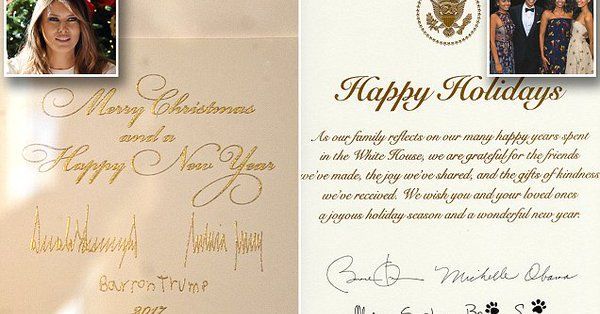 Merry Christmas
and a
Happy New Year
Barron Trump
2017
Happy Holidays
As our family reflects on our many happy years spent
in the White House, we are grateful for the friends
we've made, the joy we've shared, and the gifts of kindness
we've received. We wish you and your loved ones
a joyous holiday season and a wonderful new year.
Michelle Obama